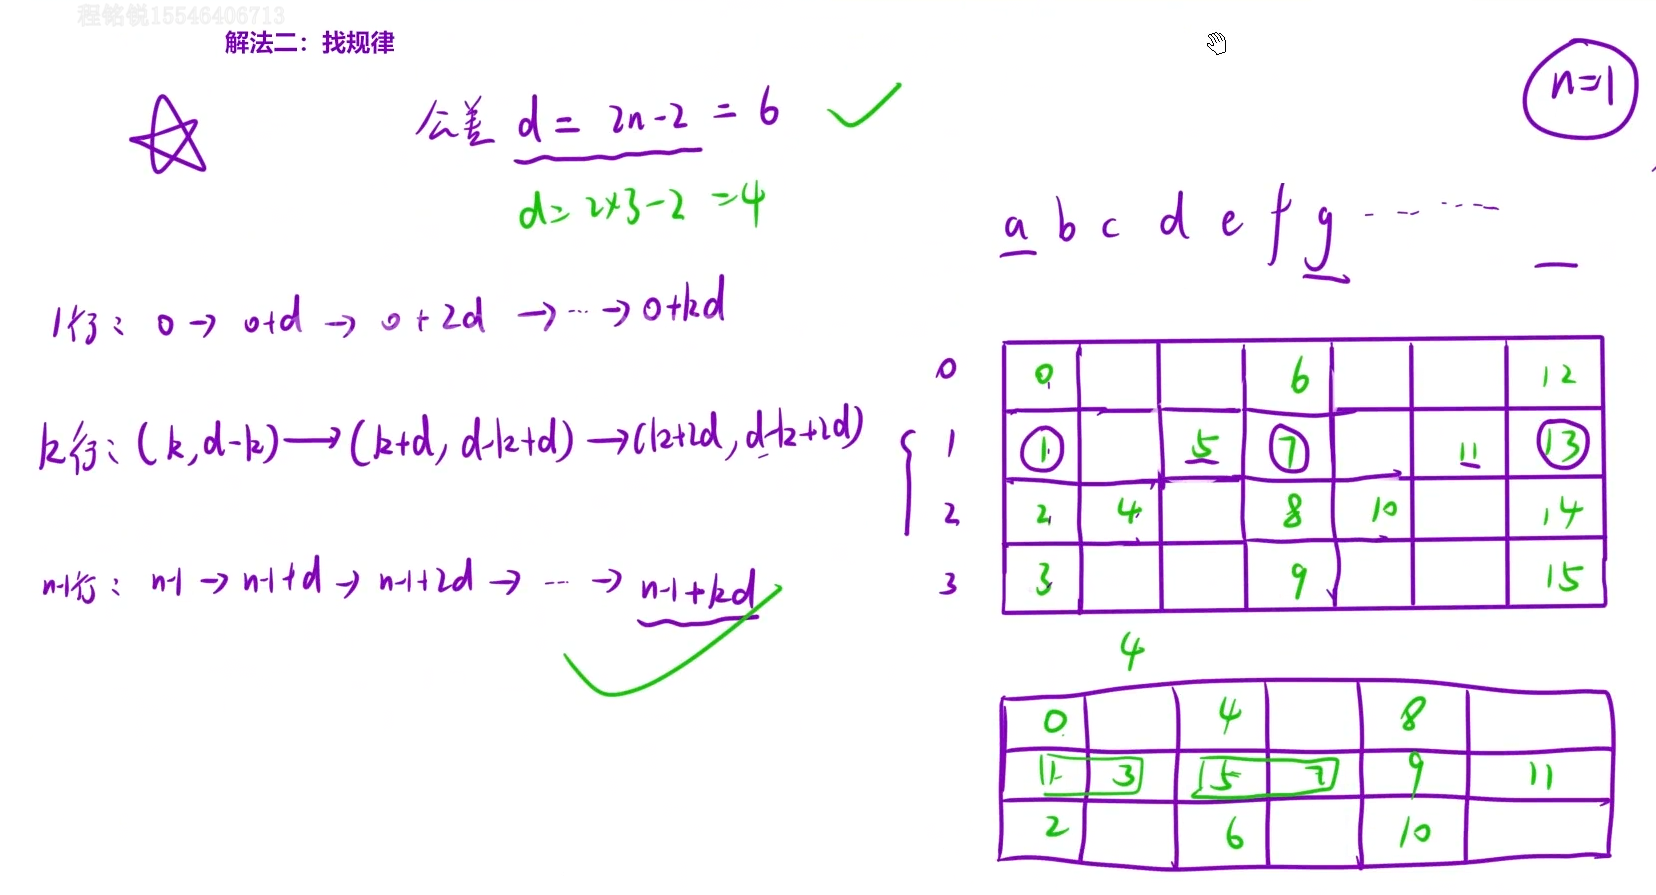 程铭锐15546406713
解法二：找规律
n=1
公差 d = 2n-2 = 6
d = 2×3-2 = 4
a b c d e f g ------
1行: 0 → 0+d → 0+2d → ... → 0+kd
k行: (k, d-k) → (k+d, d-k+d) → (k+2d, d-k+2d)
n-1行: n-1 → n-1+d → n-1+2d → ... → n-1+kd
0 0 6 12
1 1 5 7 11 13
2 2 4 8 10 14
3 3 9 15
4
0 4 8
1 3 5 7 9 11
2 6 10